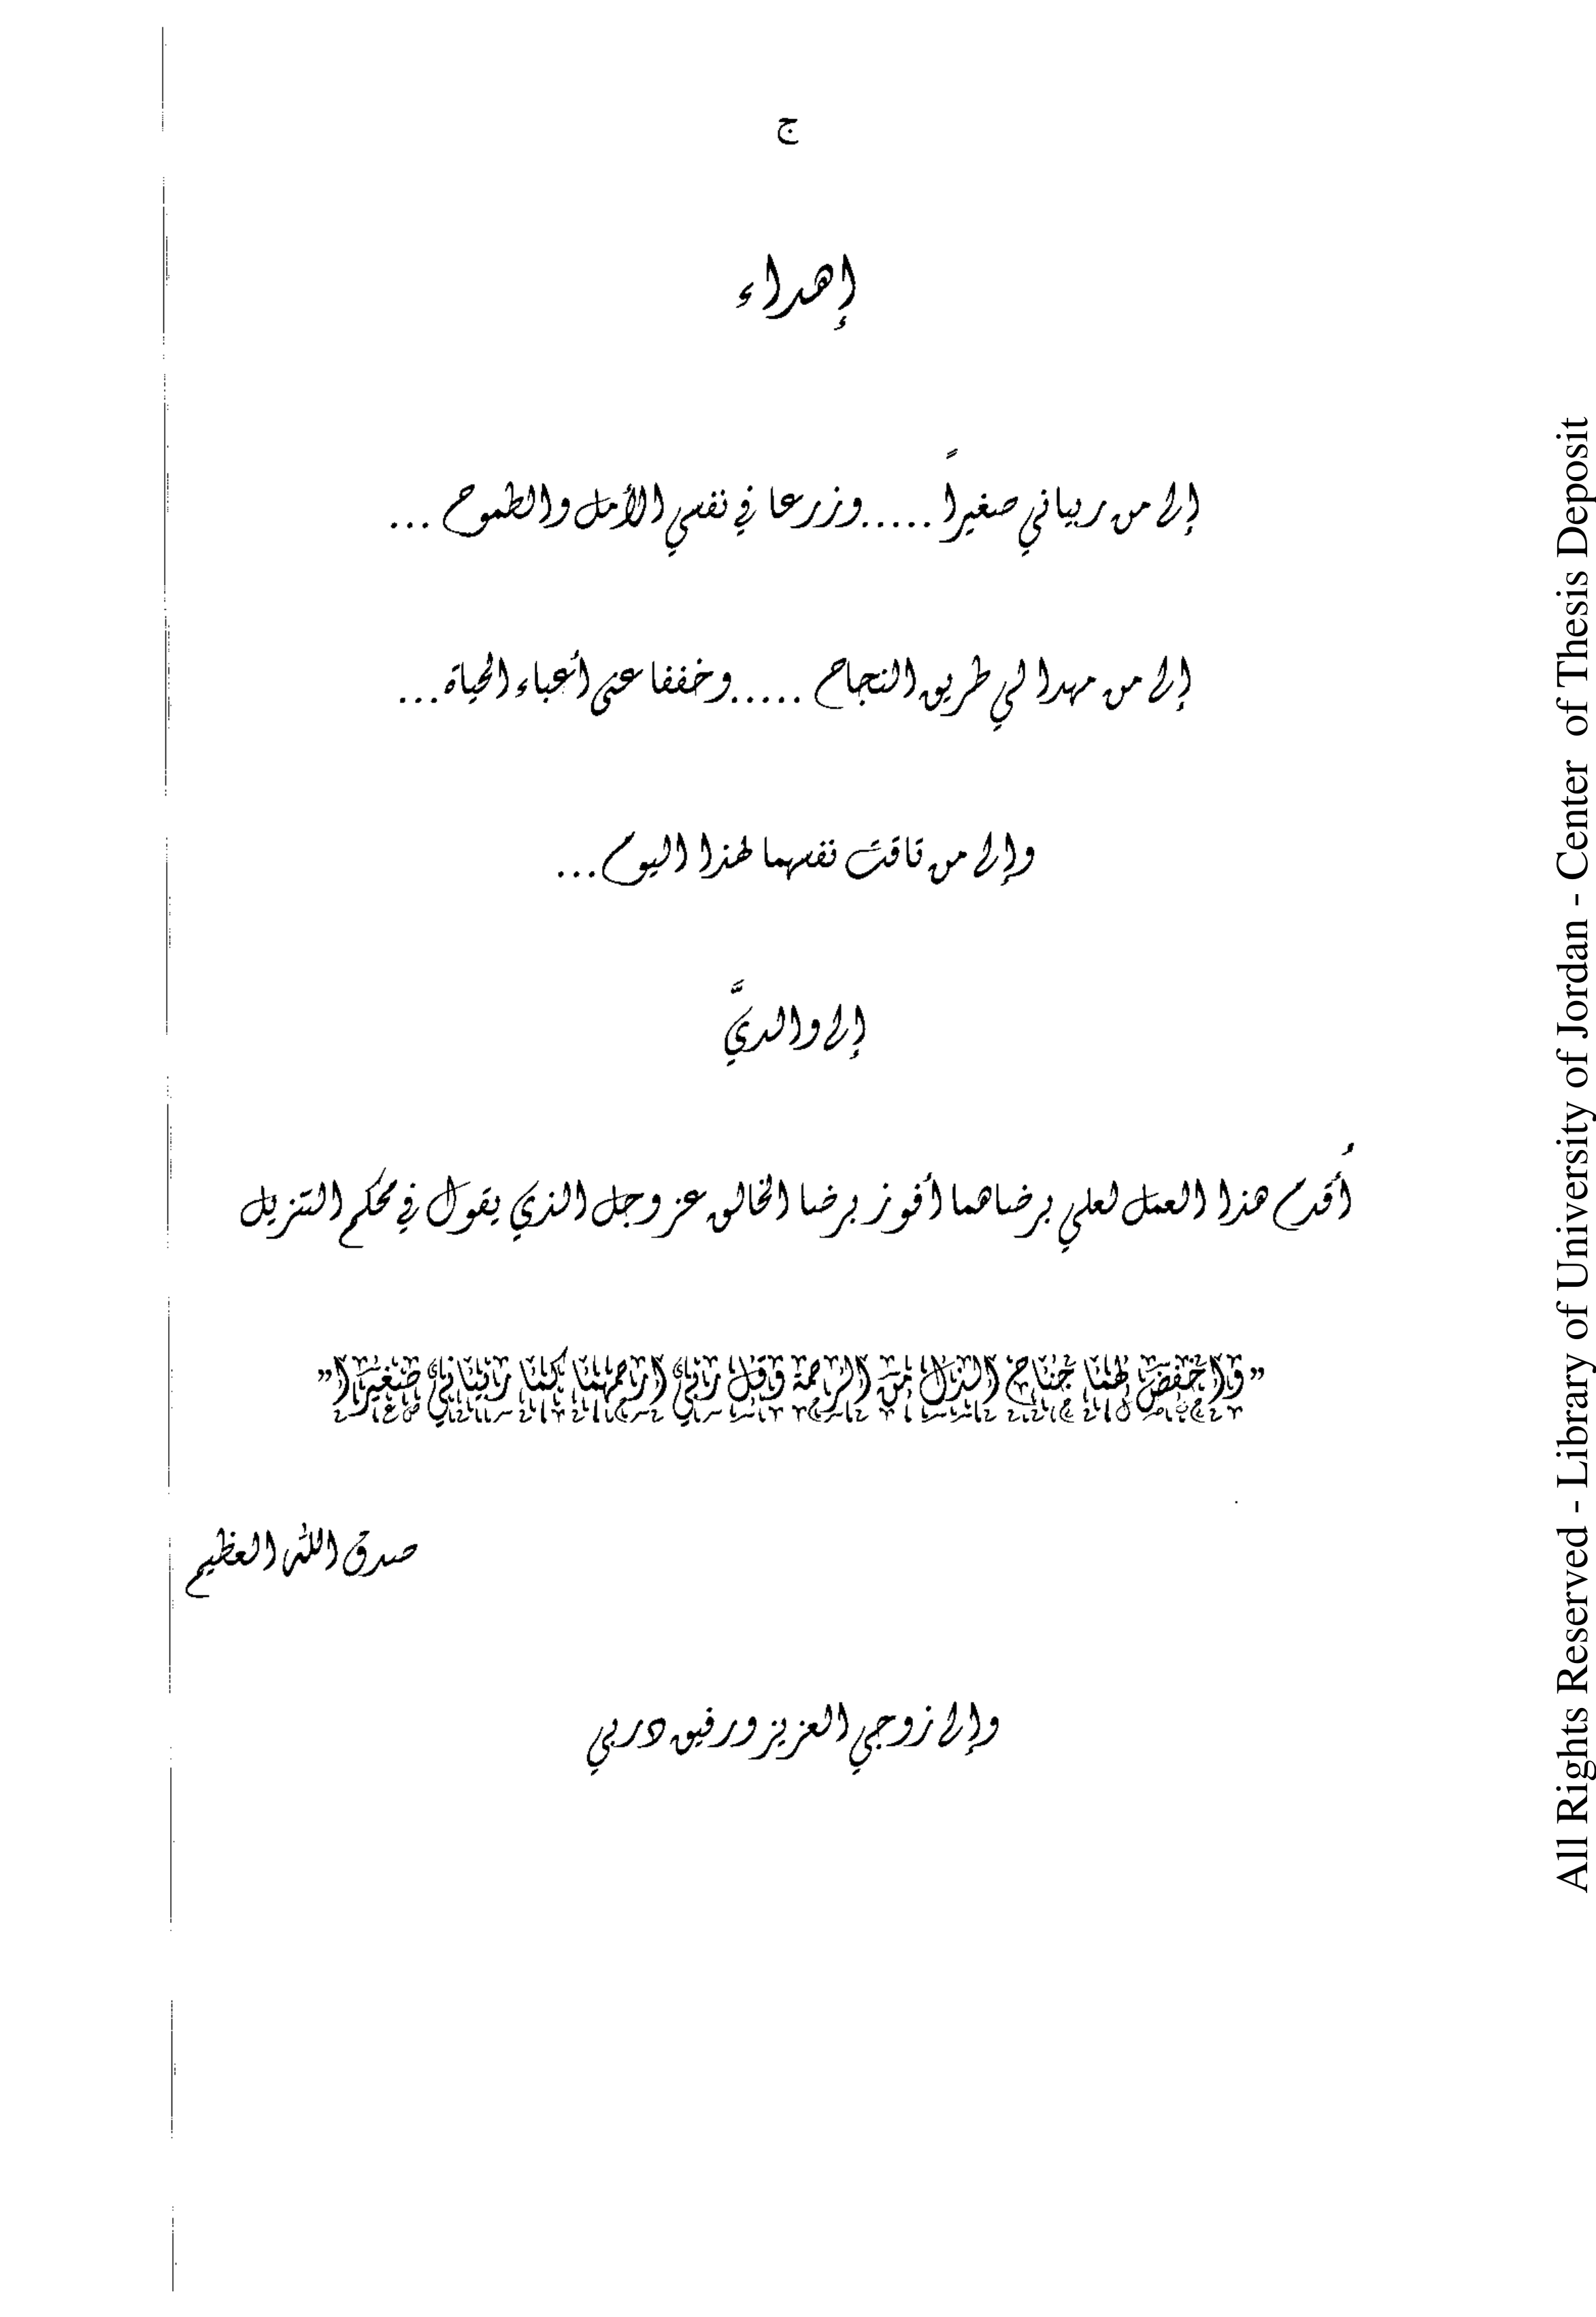 ج
إهداء
إلى من ربياني صغيراً .....وزرعا في نفسي الأمل والطموح ...
إلى من مهدا لي طريق النجاح .....وخففا عني أعباء الحياة...
وإلى من تاقت نفسهما لهذا اليوم...
إلى والديَّ
أُقدم هذا العمل لعلي برضاهما أفوز برضا الخالق عز وجل الذي يقول في محكم التنزيل
”واخفض لهما جناح الذل من الرحمة وقل ربي ارحمهما كما ربياني صغيرا”
صدق الله العظيم
وإلى زوجي العزيز ورفيق دربي
All Rights Reserved - Library of University of Jordan - Center of Thesis Deposit